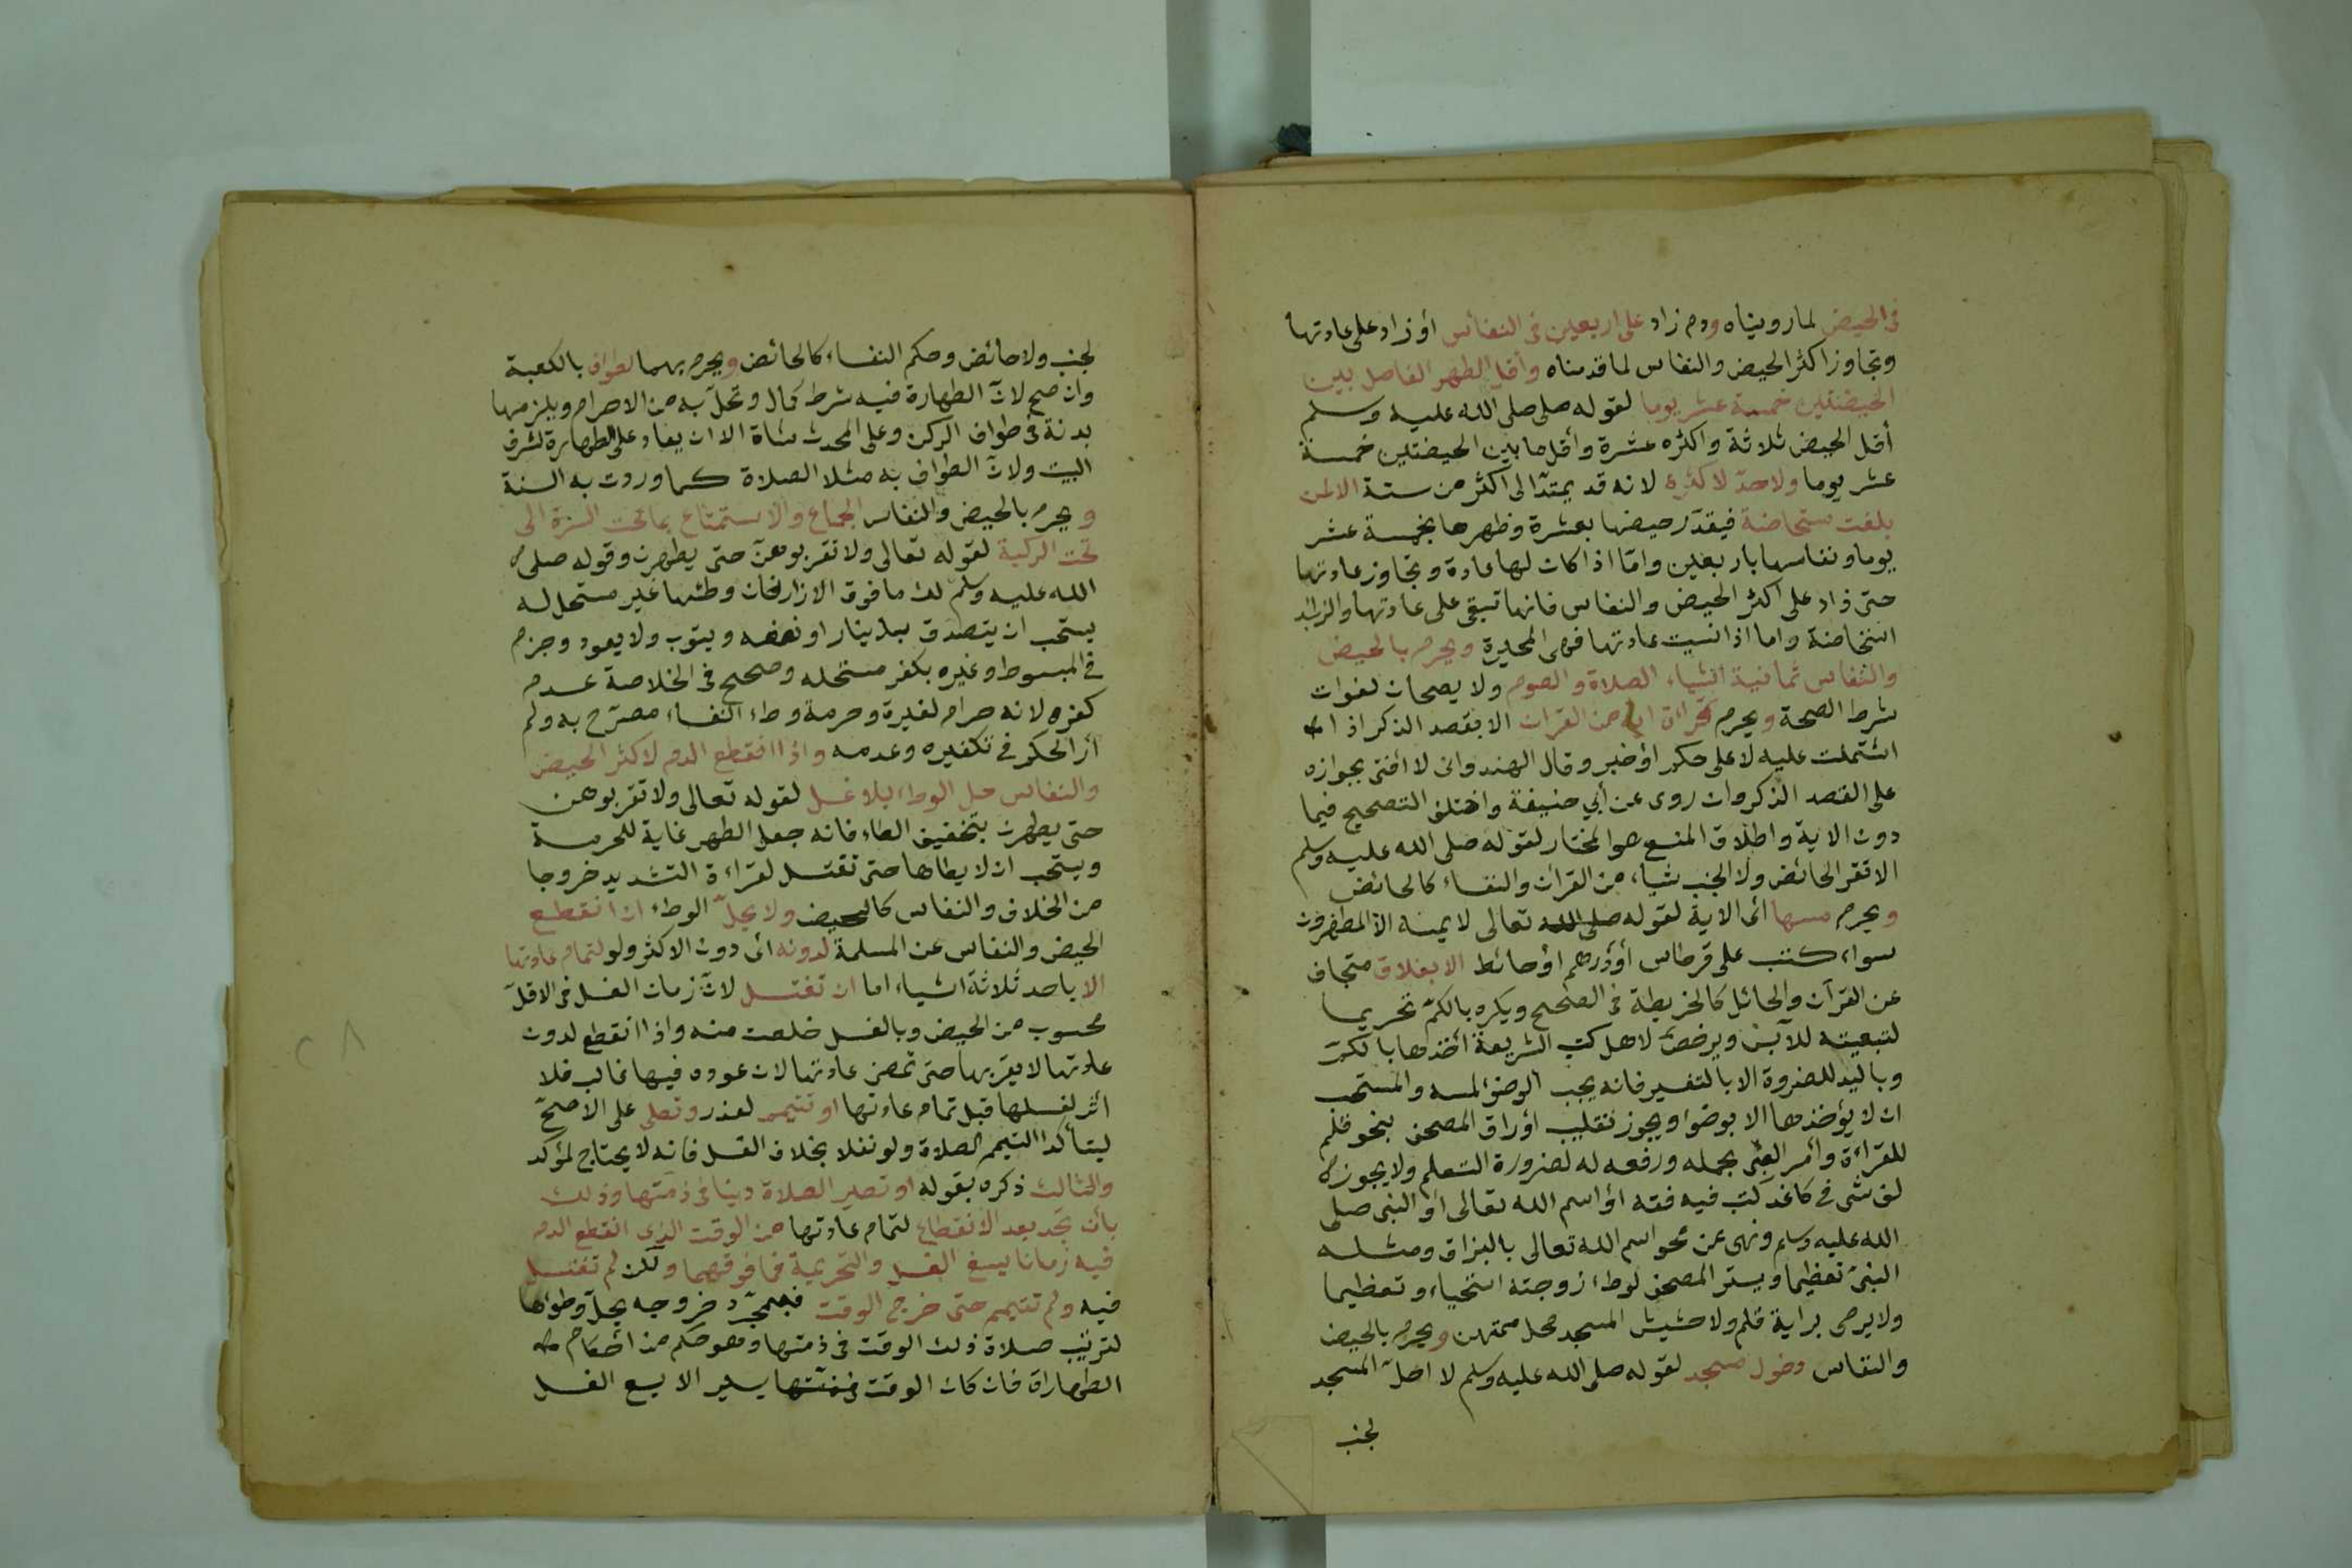 فى الحيض لما رويناه ودم زاد على اربعين فى النفاس أو زاد على عادتها
وتجاوز اكثر الحيض والنفاس لما قدمناه وأقل الطهر الفاصل بين
الحيضتين خمسة عشر يوما لقوله صلى صلى الله عليه وسلم
أقل الحيض ثلاثة واكثره عشرة وأقل ما بين الحيضتين خمسة
عشر يوما ولا حدّ لاكثره لانه قد يمتدّ الى اكثر من ستة الالمن
بلغت مستحاضة فيقدّر حيضها بعشرة وظهرها بخمسة عشر
يوما ونفاسها باربعين وامّا اذا كات لها عادة وتجاوز عادتها
حتى زاد على اكثر الحيض والنفاس فانها تبقى على عادتها والزائد
استخاضة واما اذا نسيت عادتها فهى المحيرة ويحرم بالحيض
والنفاس ثمانية اشياء الصلاة والصوم ولا يصحان لفوات
شرط الصحة ويحرم قراة اية من القران الا بقصد الذكر اذا
اشتملت عليه لا على حكم او خبر وقال الهندوانى لا أفتى بجوازه
على القصد الذكر وان روى عن أبي حنيفة واختلف التصحيح فيما
دون الاية واطلاق المنع هو المختار لقوله صلى الله عليه وسلم
الا تقر الحائض ولا الجنب شياء من القران والنفساء كالحائض
ويحرم مسها اى الاية لقوله صلى الله تعالى لا يمسه الا المطهرون
سواء كتب على قرطاس أو درهم أو حائط الا بغلاق متجاف
عن القرآن والحائل كالخريطة فى الصحيح ويكره بالكمّ تحريما
لتبعيته للآبس ويرخص لاهل كتب الشريعة اخذها بالكمّ
وباليد للضروة الا بالتفسير فانه يجب الوضو لمسه والمستحب
ان لا يؤخذها الا بوضوا ويجوز تقليب أوراق المصحف بنحو قلم
للقراءة وأمر الصبى بجمله ورفعه له لضرورة التعلم ولا يجوز
لف شى فى كاغد كتب فيه فقه أو اسم الله تعالى أو النبى صلى
الله عليه وسلم ونهى عن محو اسم الله تعالى بالبزاق ومثله
النبىّ تعظيما ويستر المصحف لوطء زوجته استحياء وتعظيما
ولا يرمى براية قلم ولا حشيش المسجد محل ممتهن ويحرم بالحيض
والنفاس دخول مسجد لقوله صلى الله عليه وسلم لا احلّ المسجد
لجنب
لجنب ولا حائض وحكم النفساء كالحائض ويحرم بهما لطواف بالكعبة
وان صح لانّ الطهارة فيه شرط كمال وتحلّ به من الاحرام ويلزمها
بدنة فى طواف الركن وعلى المحدث شاة الا ان يعاد على الطهارة لشرف
البيت ولانّ الطواف به مثلا الصلاة كما وردت به السنة
ويحرم بالحيض والنفاس الجماع والاستمتاع بما تحت السرة الى
تحت الركبة لقوله تعالى ولا تقربوهنّ حتى يطهرن وقوله صلى
الله عليه وسلم لك ما فوق الازار فان وطئها غير مستحل له
يستحب ان يتصدق بدينار او نصفه ويتوب ولا يعود وجزم
فى المبسوط وغيره بكفر مستحله وصحح فى الخلاصة عدم
كفره لانه حرام لغيره وحرمة وطء النفساء مصرّح به ولم
أر الحكم فى تكفيره وعدمه واذا انقطع الدم لاكثر الحيض
والنفاس حل الوطء بلا غسل لقوله تعالى ولا تقربوهن
حتى يطهرن بتخفيف الطاء فانه جعل الطهر غاية للحرمة
ويستحب ان لا يطاها حتى تغتسل لقراءة التشديد خروجا
من الخلاف والنفاس كالحيض ولا يحلّ الوطء ان انقطع
الحيض والنفاس عن المسلمة لدونه اى دون الاكثر ولو لتمام عادتها
الا باحد ثلاثة اشياء اما ان تغتسل لانّ زمان الغسل فى الاقلّ
محسوب من الحيض وبالغسل خلصت منه واذا انقطع لدون
عادتها لا يقربها حتى تمضى عادتها لان عوده فيها غالب فلا
أثر لغسلها قبل تمام عادتها او تتيمم لعذر وتصلى على الاصحّ
ليتأكد التيمم الصلاة ولو نفلا بخلاف الغسل فانه لا يحتاج لمؤكد
والثالث ذكره بقوله او تصير الصلاة دينا فى ذمتها وذلك
بأن تجد بعد الانقطاع لتمام عادتها من الوقت الذى انقطع الدم
فيه زمانا يسع الغسل والتحريمة فما فوقهما ولكن لم تغتسل
فيه ولم تتيمم حتى خرج الوقت فبمجرّد خروجه يحلّ وطؤها
لترتيب صلاة ذلك الوقت فى ذمتها وهو حكم من احكام
الطهارات فان كان الوقت يسير الا يسع الغسل
٢٨